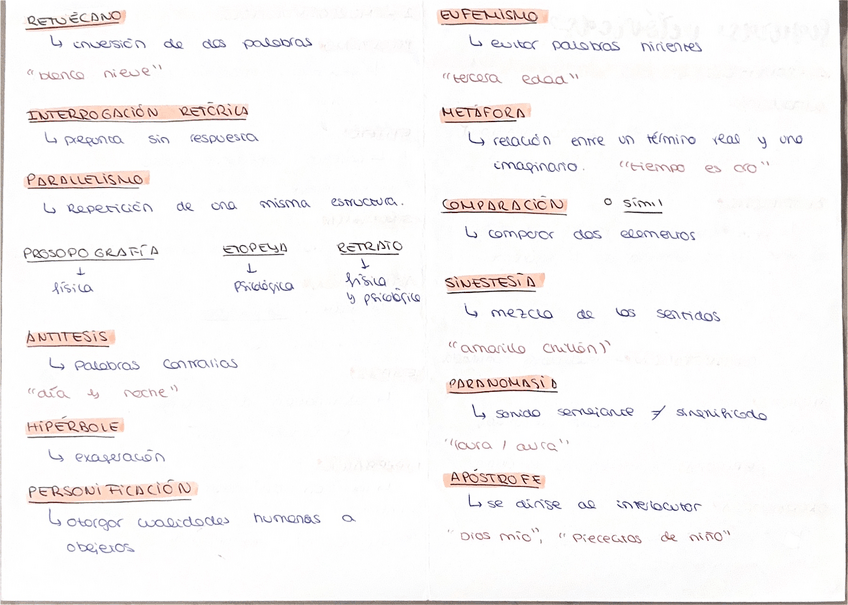 RETUÉCANO
↳ inversión de dos palabras
"blanca nieve"
INTERROGACIÓN RETÓRICA
↳ pregunta sin respuesta
PARALLELISMO
↳ Repetición de una misma estructura.
PROSOPOGRAFÍA
↓
física
ETOPEYA
↓
Psicológica
RETRATO
↓
física
y psicológica
ANTITESIS
↳ Palabras contrarias
"día y noche"
HIPÉRBOLE
↳ exageración
PERSONIFICACIÓN
↳ otorgar cualidades humanas a
objetos
EUFEMISMO
↳ evitar palabras hirientes
"tercera edad"
METÁFORA
↳ relación entre un término real y uno
imaginario. "tiempo es oro"
COMPARACIÓN o símil
↳ comparar dos elementos
SINESTESIA
↳ mezcla de los sentidos
"amarillo chillón"
PARANOMASIA
↳ sonido semejante ≠ significado
/ aura"
APÓSTROFE
↳ se dirige al interlocutor
"Dios mío", "Piececitos de niño"